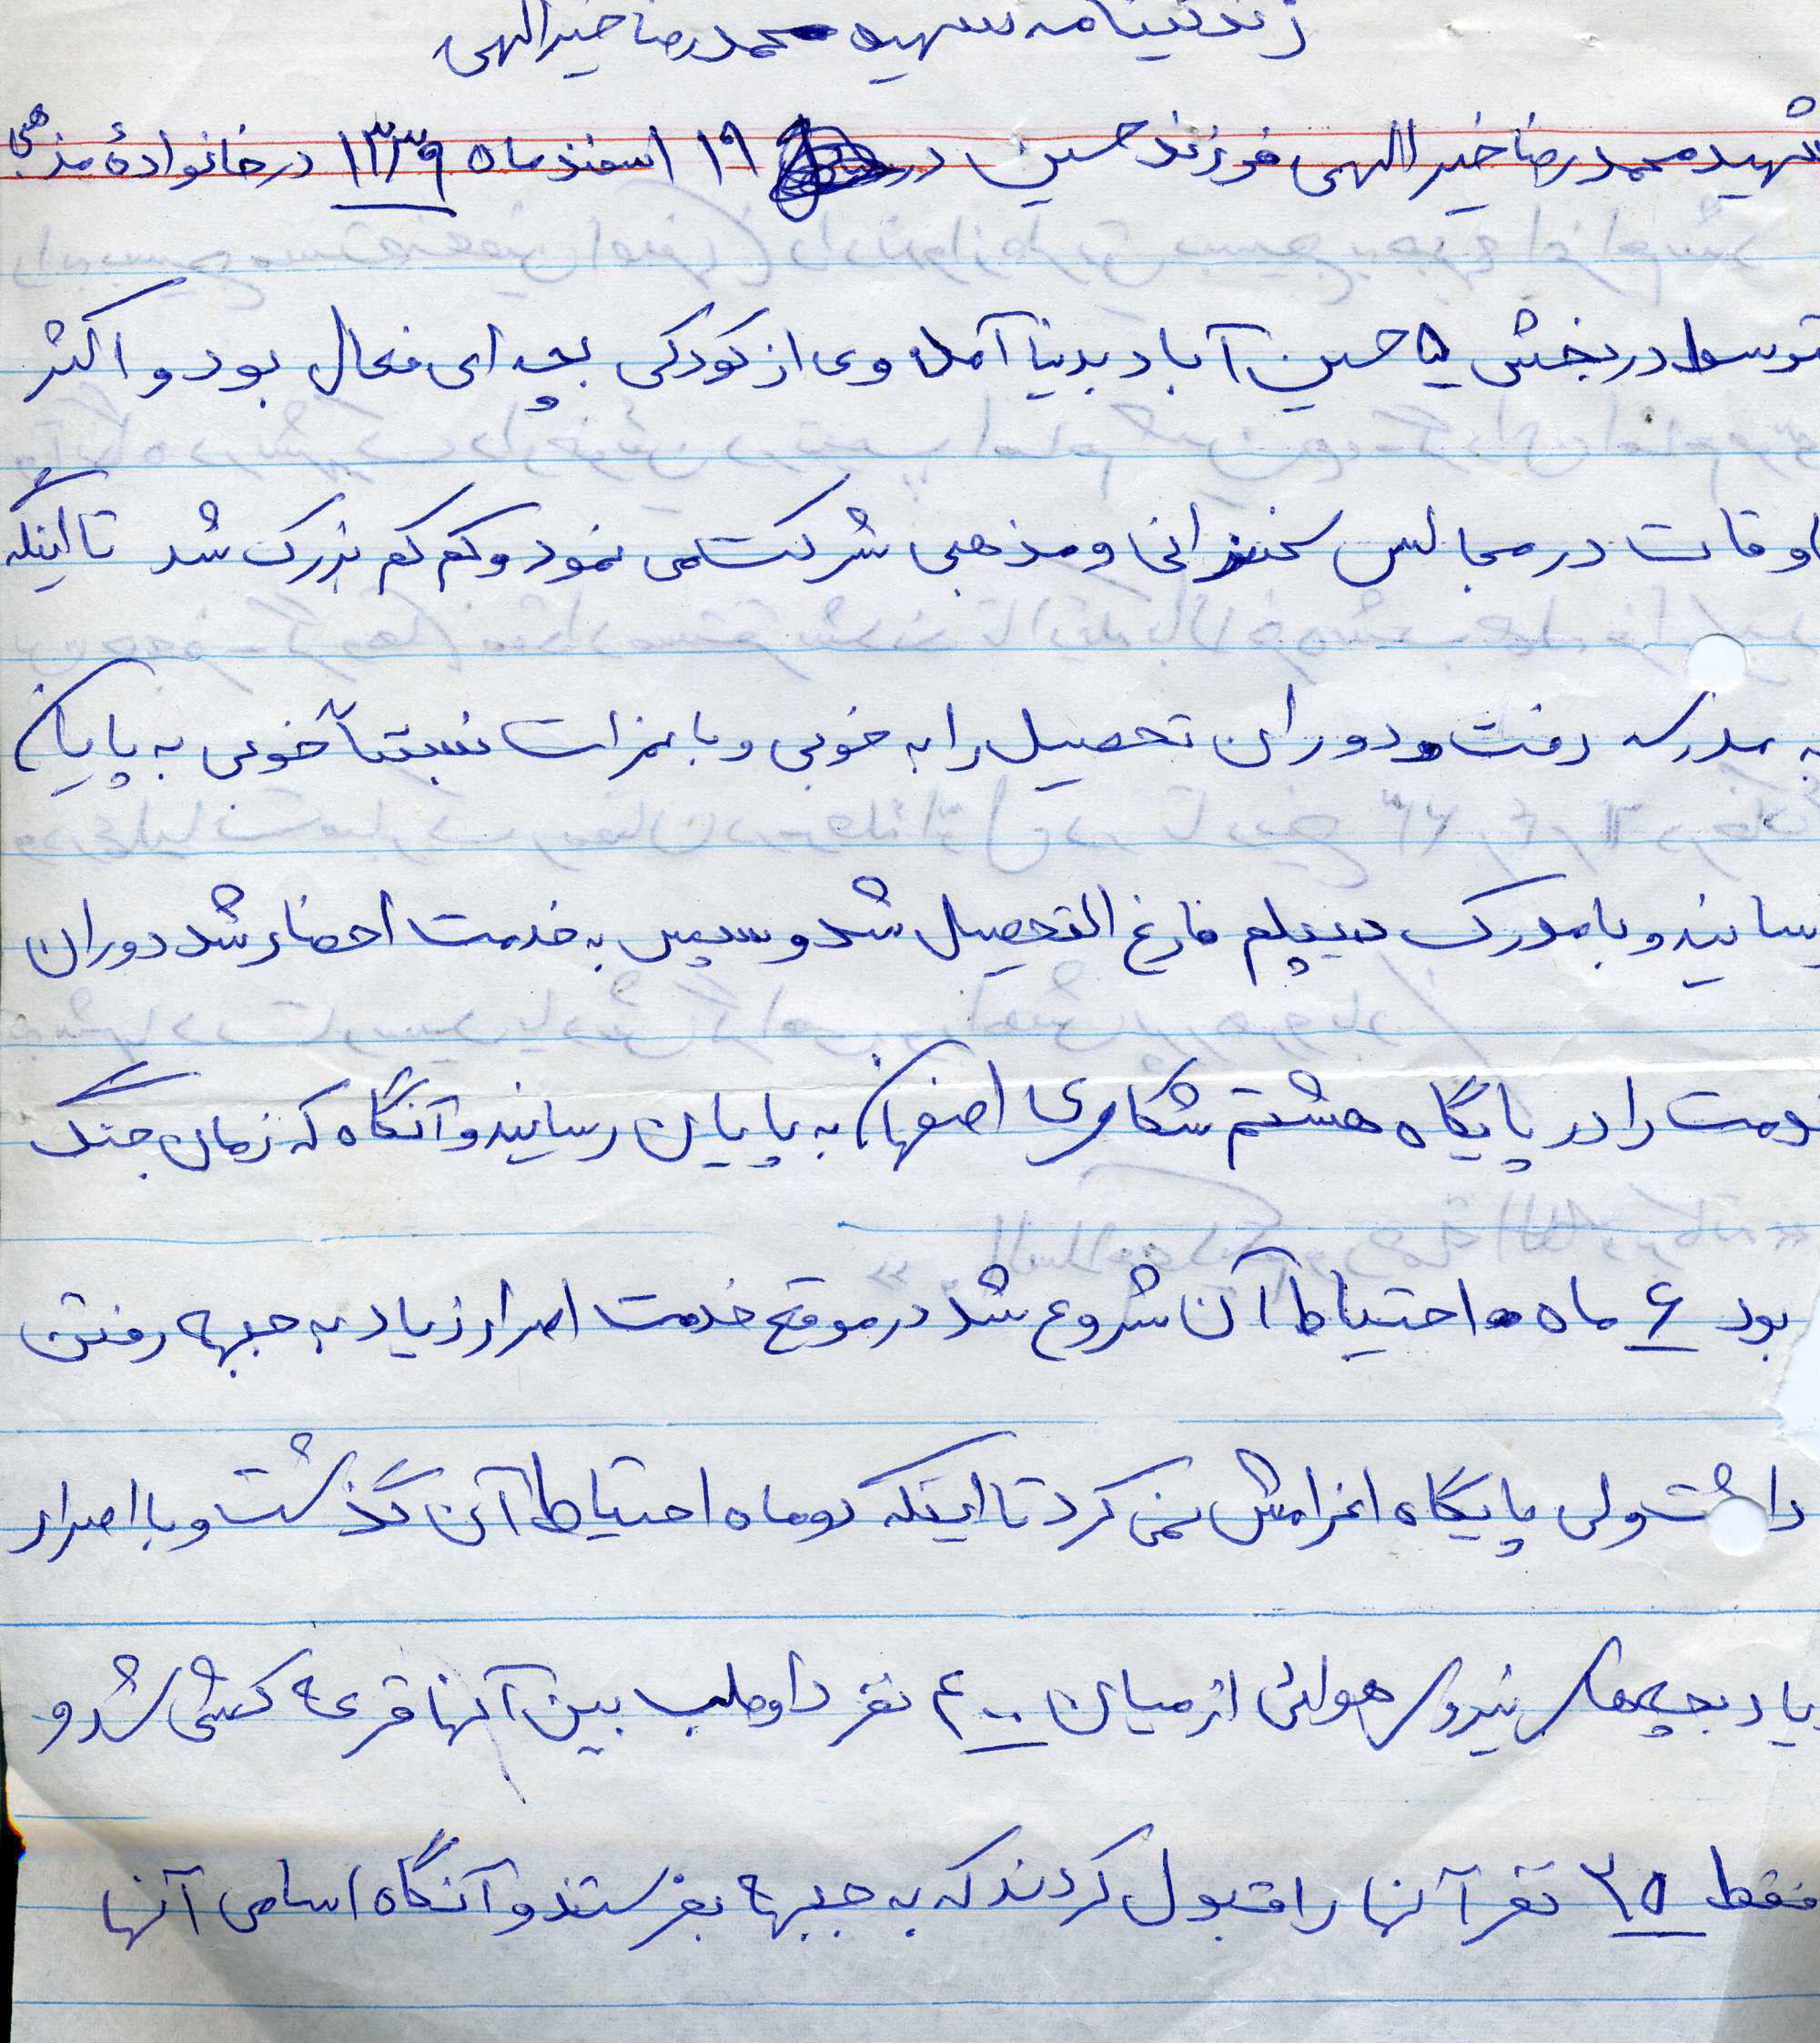 زندگینامه شهید محمدرضا خیرالهی
شهید محمدرضا خیرالهی فرزند حسین در ۱۹ اسفند ماه ۱۳۳۹ در خانوادهٔ مذهبی
توسط در بخش ۵ حسین آباد بدنیا آمد وی از کودکی بچه ای فعال بود و اکثر
اوقات در مجالس سخنرانی و مذهبی شرکت می نمود و کم کم بزرگ شد تا اینکه
به مدرسه رفت و دوران تحصیل را به خوبی و با نمرات نسبتاً خوبی به پایان
رسانید و با مدرک دیپلم فارغ التحصیل شد و سپس به خدمت احضار شد دوران
خدمت را در پایگاه هشتم شکاری اصفهان به پایان رسانید و آنگاه که زمان جنگ
بود ۶ ماه احتیاط آن شروع شد در موقع خدمت اصرار زیاد به جبهه رفتن
داشت ولی پایگاه اعزامش نمی کرد تا اینکه دو ماه احتیاط آن گذشت و با اصرار
زیاد بچه های نیروی هوائی از میان ۴۰۰ نفر داوطلب بین آنها قرعه کشی شد و
فقط ۲۵ نفر آنها را قبول کردند که به جبهه بفرستند و آنگاه اسامی آنها